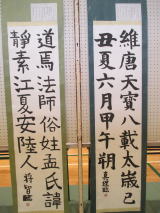 維唐天寳八載太歳己
丑夏六月甲午朔
真理臨
道焉法師俗姓孟氏諱
靜素江夏安陸人